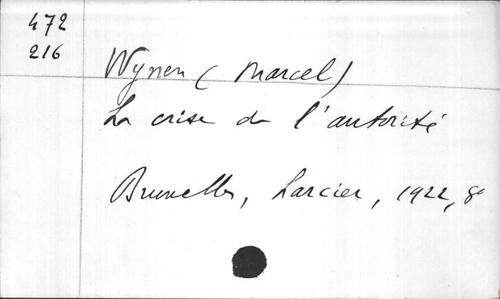 472
216
Wynen (Marcel)
La crise de l'autorité
Bruxelles, Larcier, 1922, 8º